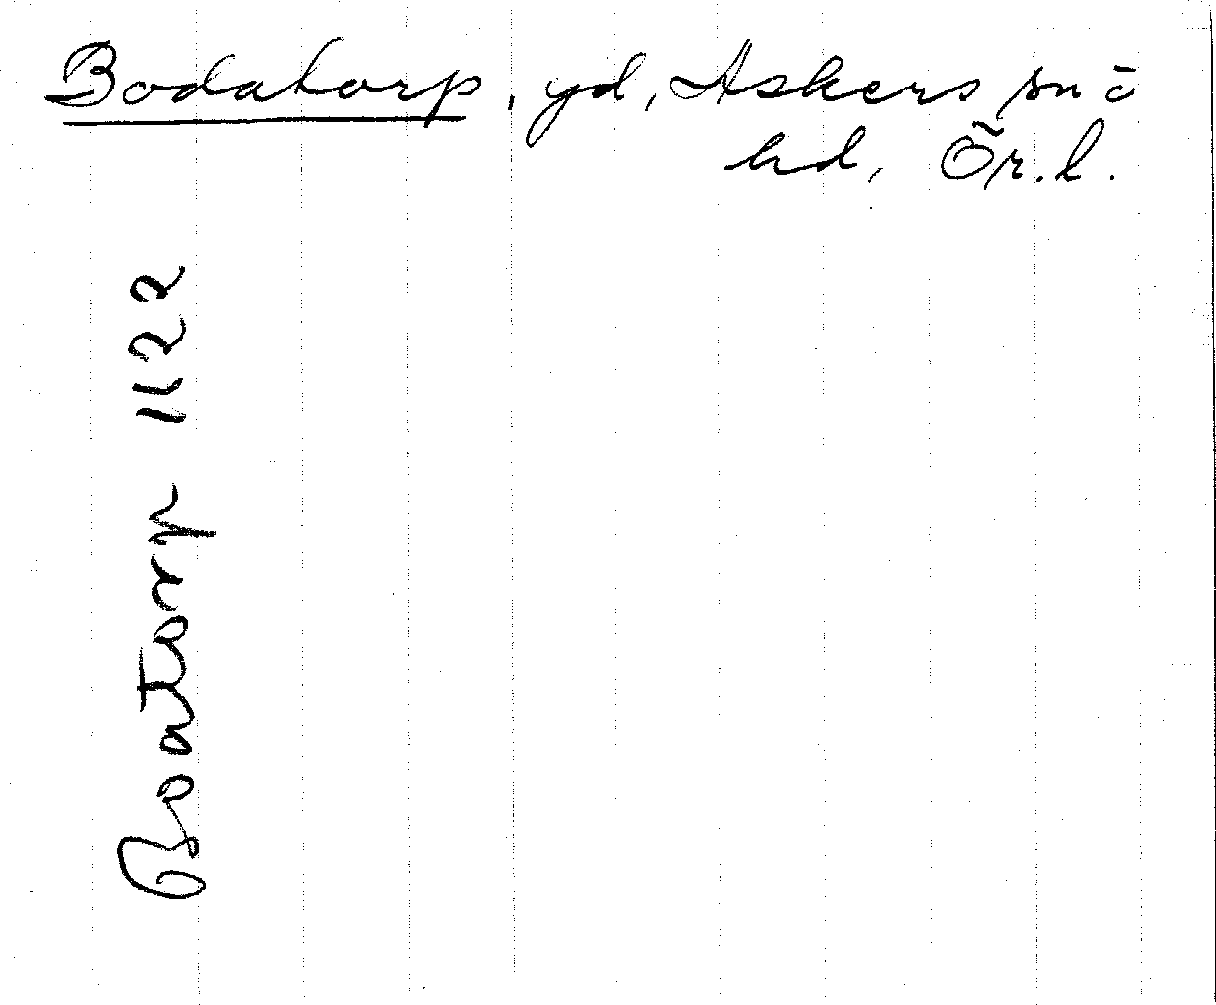 Bodatorp, gd, Askers sn o
hd, Ör. l.
Boatorp 1122